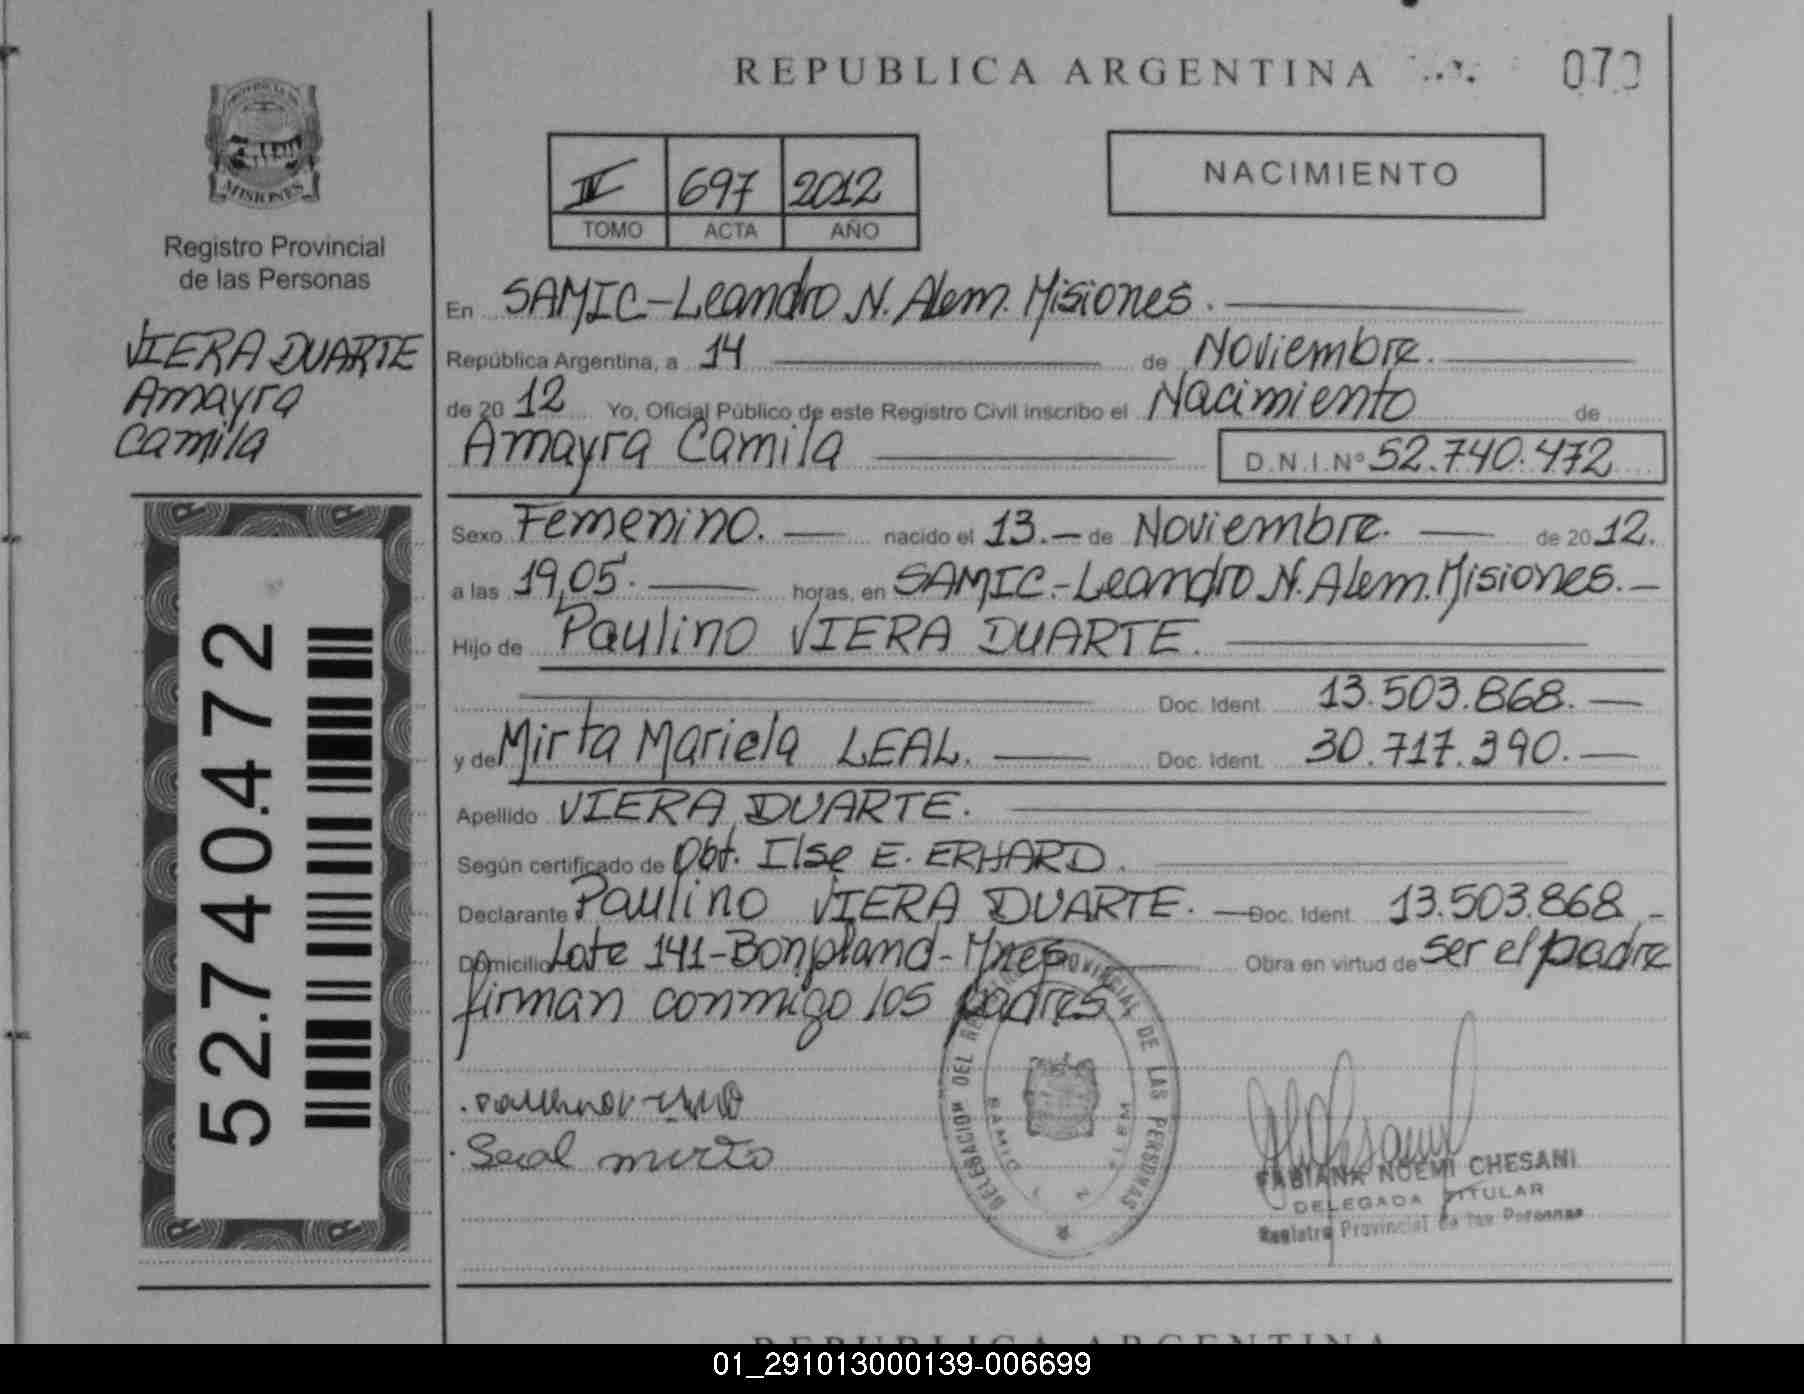 REPUBLICA ARGENTINA
PROVINCIA DE
MISIONES
Registro Provincial
de las Personas
VIERA DUARTE
Amayra
Camila
52.740.472
IV 697 2012
TOMO ACTA AÑO
NACIMIENTO
En SAMIC-Leandro N. Alem. Misiones.
República Argentina, a 14 de Noviembre.
de 2012 Yo, Oficial Público de este Registro Civil inscribo el Nacimiento de
Amayra Camila D.N.I.Nº 52.740.472
Sexo Femenino. nacido el 13.- de Noviembre. de 2012.
a las 19,05. horas, en SAMIC.-Leandro N. Alem. Misiones.-
Hijo de Paulino VIERA DUARTE.
Doc. Ident. 13.503.868.
y de Mirta Mariela LEAL. Doc. Ident. 30.717.390.
Apellido VIERA DUARTE.
Según certificado de Obt. Ilse E. ERHARD.
Declarante Paulino VIERA DUARTE. Doc. Ident. 13.503.868.-
Domicilio Lote 141-Bonpland-Mnes Obra en virtud de ser el padre
firman conmigo los padres
DELEGACION DEL REGISTRO PROVINCIAL DE LAS PERSONAS
FABIANA NOEMI CHESANI
DELEGADA TITULAR
Registro Provincial de las Personas
REPUBLICA ARGENTINA
01_291013000139-006699